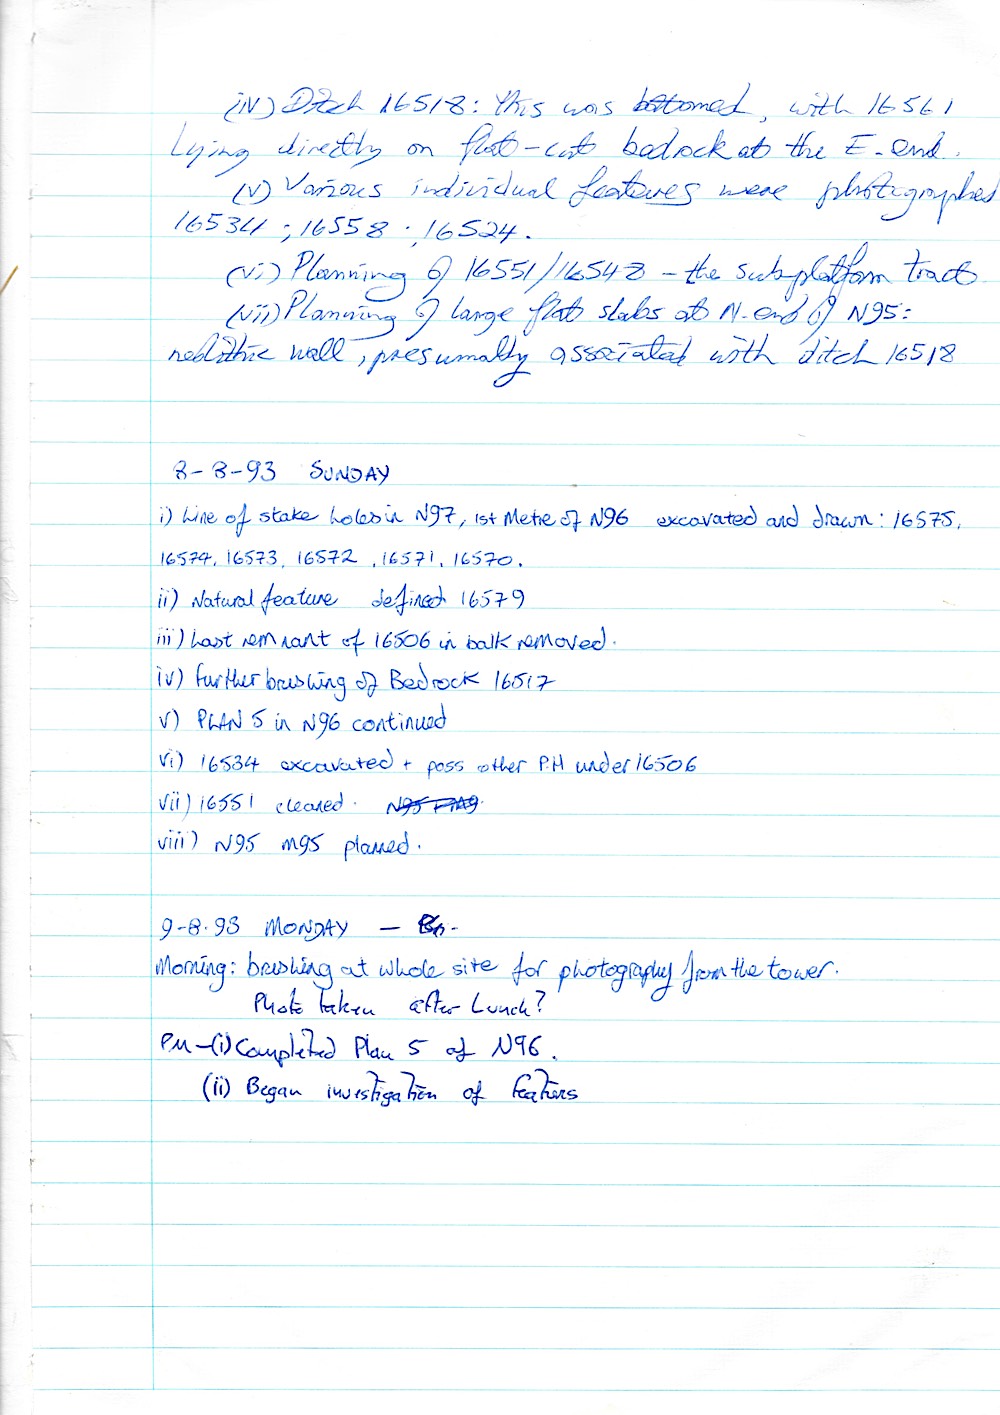 (iv) Ditch 16518: this was bottomed, with 16561
lying directly on flat-cut bedrock at the E-end.
(v) Various individual features were photographed
16534; 16558; 16524.
(vi) Planning of 16551/16548 - the sub-platform tract
(vii) Planning of large flat slabs at N-end of N95:
neolithic wall, presumably associated with ditch 16518
8-8-93 SUNDAY
i) Line of stake holes in N97, 1st Metre of N96 excavated and drawn: 16575,
16574, 16573, 16572, 16571, 16570.
ii) Natural feature defined 16579
iii) Last remnant of 16506 in balk removed.
iv) Further brushing of Bedrock 16517
v) PLAN 5 in N96 continued
vi) 16534 excavated + poss other P.H under 16506
vii) 16551 cleaned.
viii) N95 M95 planned.
9-8-93 MONDAY -
Morning: brushing at whole site for photography from the tower.
Photo taken after Lunch?
PM - (i) Completed Plan 5 of N96.
(ii) Began investigation of features